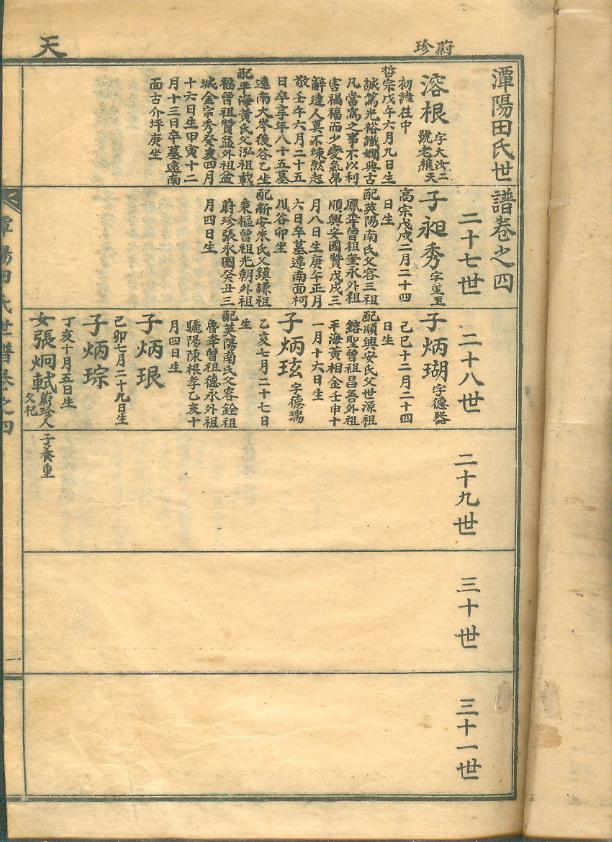 天
蔚珍
潭陽田氏世譜卷之四
溶根
字大汝
號老巖
初諱在中
哲宗戊午六月九日生
誠篤光裕識嫺典古
凡當寓之事不以利
害禍福而少變氣昂
辭達人莫不竦然起
敬壬午六月二十五
日卒享年八十五墓
遠南大岑後谷乙坐
配平海黃氏父泓祖載
福曾祖贊益外祖盆
城金宗秀癸亥四月
十六日生甲寅十二
月十三日卒墓遠南
面古介坪庚坐
二十七世
子昶秀
高宗戊戌二月二十四
日生
配英陽南氏父容三祖
鳳奎曾祖奎永外祖
順興安國贊戊戌三
月八日生庚午正月
六日卒墓遠南面柯
瓜谷卯坐
配新安朱氏父鎮謙祖
秉樞曾祖光朝外祖
蔚珍張永國癸丑三
月四日生
二十八世
子炳瑚字德器
己巳十二月二十四
日生
配順興安氏父世源祖
鎔聖曾祖昌善外祖
平海黃相金壬申十
一月十六日生
子炳玹字德瑞
乙亥七月二十七日
生
配英陽南氏父容銓祖
魯奎曾祖德永外祖
驪陽陳根孝乙亥十
月四日生
子炳珢
子炳琮
己卯七月二十九日生
丁亥十月五日生
女張炯軾蔚珍人
子養重
二十九世
三十世
三十一世
潭陽田氏世譜卷之四
一